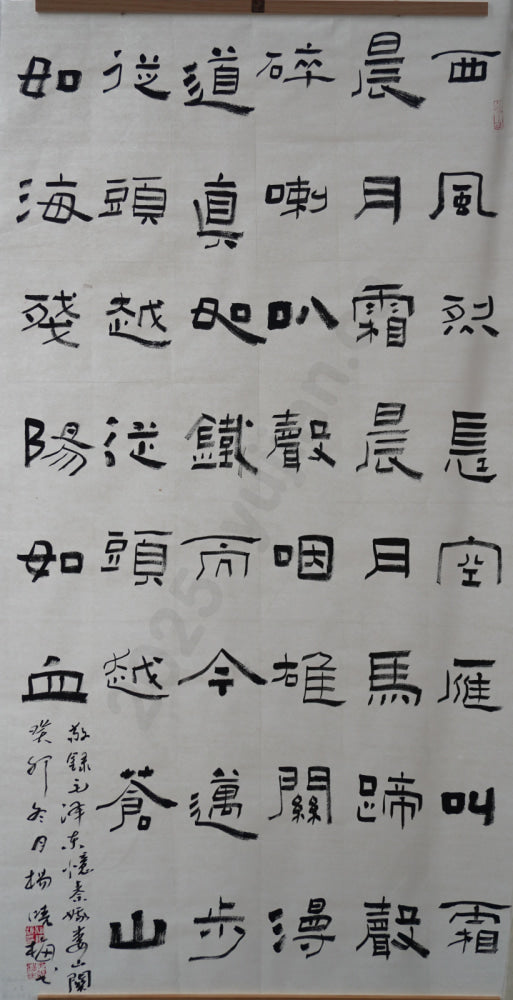 西風烈長空雁叫霜
晨月霜晨月馬蹄聲
碎喇叭聲咽雄關漫
道真如鐵而今邁步
從頭越從頭越蒼山
如海殘陽如血
敬録毛泽东憶秦娥娄山關
癸卯冬月楊曉梅书